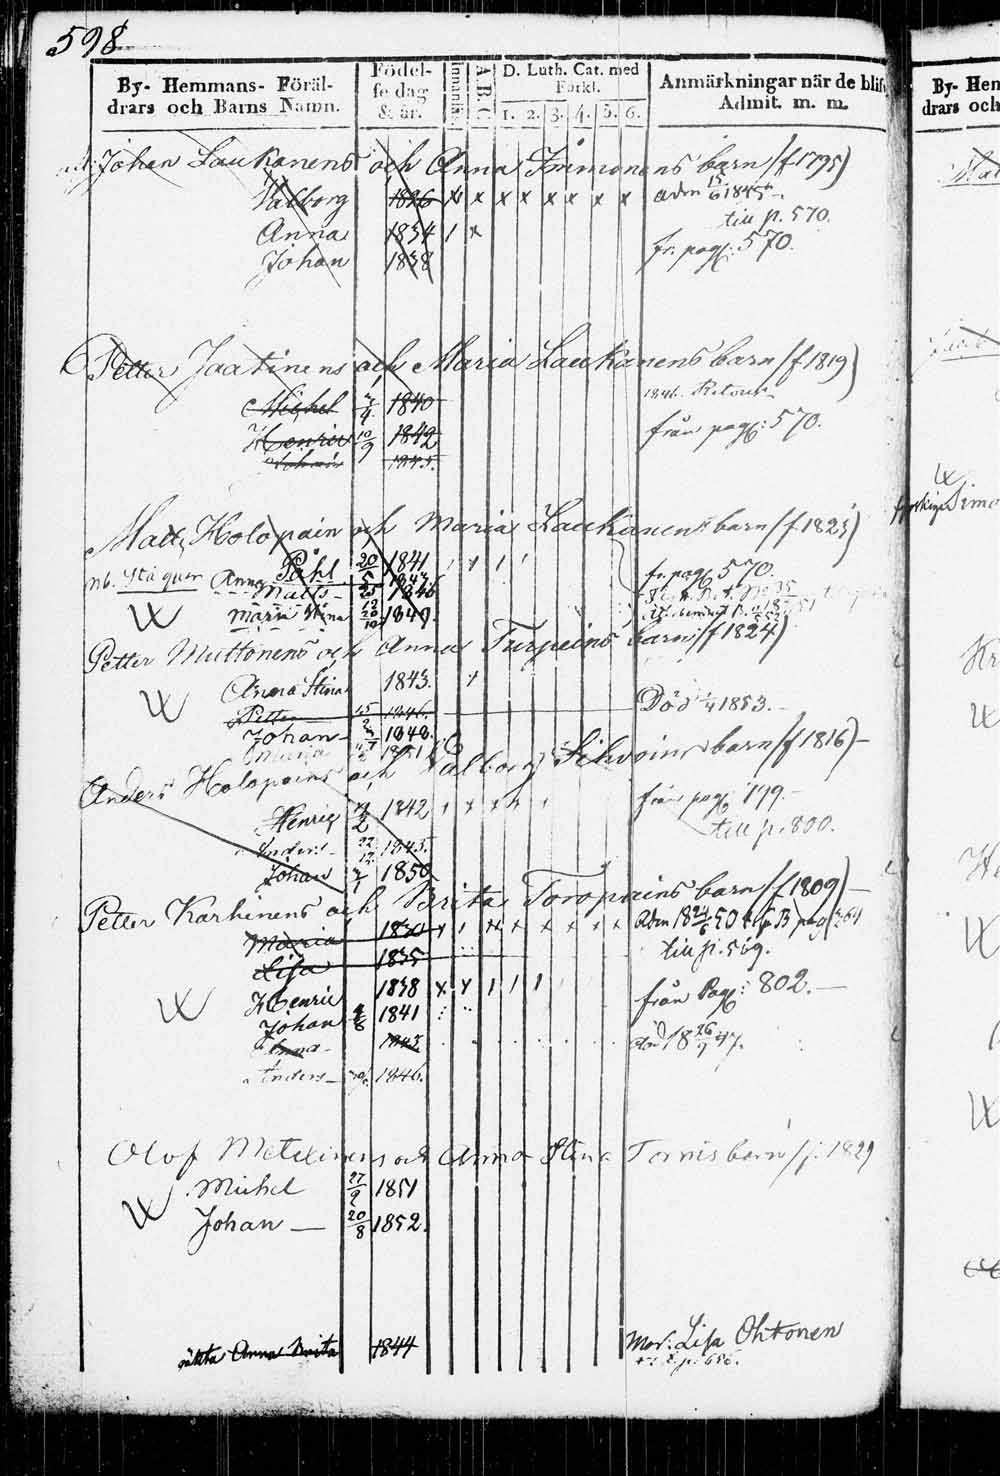 598
By- Hemmans- Föräl-
drars och Barns Namn.
Födel-
se dag
& år.
Innanläs.
A.B.C.
D. Luth. Cat. med
Förkl.
1. 2. 3. 4. 5. 6.
Anmärkningar när de blifv
Admit. m. m.
By- Hem
drars och
Johan Laukanens och Anna Immonens barn (f 1795)
Valborg 1826 x x x x x x x x adm 15/6 1845
till p. 570.
Anna 1834 1 x
fr. pag: 570.
Johan 1838
Petter Jaatinens och Maria Laukanens barn (f 1819)
1846. Retour
Michel 1840
från pag: 570.
Henric 10/9 1842
1845.
Matts Holopain och Maria Laukanens barn (f 1825)
Påhl 20/5 1841
fr. pag 570.
Nb. Stå quar Anna
Matts 1846
Maria Stina 1849.
Petter Muttonens och Anna Turpeins barn (f 1824)
Anna Stina 1843.
Petter 15 1846.
Död 1853.
Johan 1848.
Maria 1851
Anders Holopains och Valborg Sihvoins barn (f 1816)
Henric 1842
från pag 199.
till p. 800.
Anders 22/12 1845.
Johan 1850
Petter Karhinens och Brita Toropains barn (f 1809)
Maria 1830
Adm 18 50
till p. 569.
Lisa 1835
Henric 1838 x x 1 1 1
från Pag: 802.
Johan 1841
Anna 1843
död 18 26/9 47.
Anders 1846.
Olof Metelinens och Anna Stina Tornis barn (f. 1829
Michel 27/9 1851
Johan 20/8 1852.
oäkta Anna Brita 1844
Mor. Lisa Ohtonen